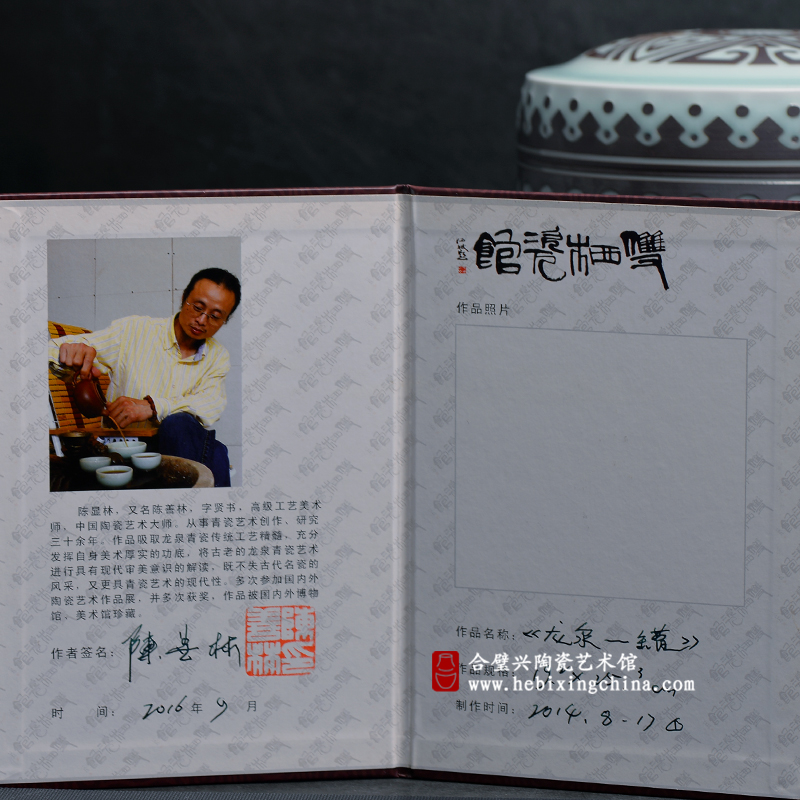 陈显林，又名陈善林，字贤书，高级工艺美术
师，中国陶瓷艺术大师。从事青瓷艺术创作、研究
三十余年。作品吸取龙泉青瓷传统工艺精髓，充分
发挥自身美术厚实的功底，将古老的龙泉青瓷艺术
进行具有现代审美意识的解读，既不失古代名瓷的
风采，又更具青瓷艺术的现代性。多次参加国内外
陶瓷艺术作品展，并多次获奖，作品被国内外博物
馆、美术馆珍藏。
作者签名：
陳善林
时 间：2016年9月
館瓷栖雙
作品照片
作品名称：《龙泉
作品规格：
制作时间：2014.8-17
合璧兴陶瓷艺术馆
www.hebixingchina.com